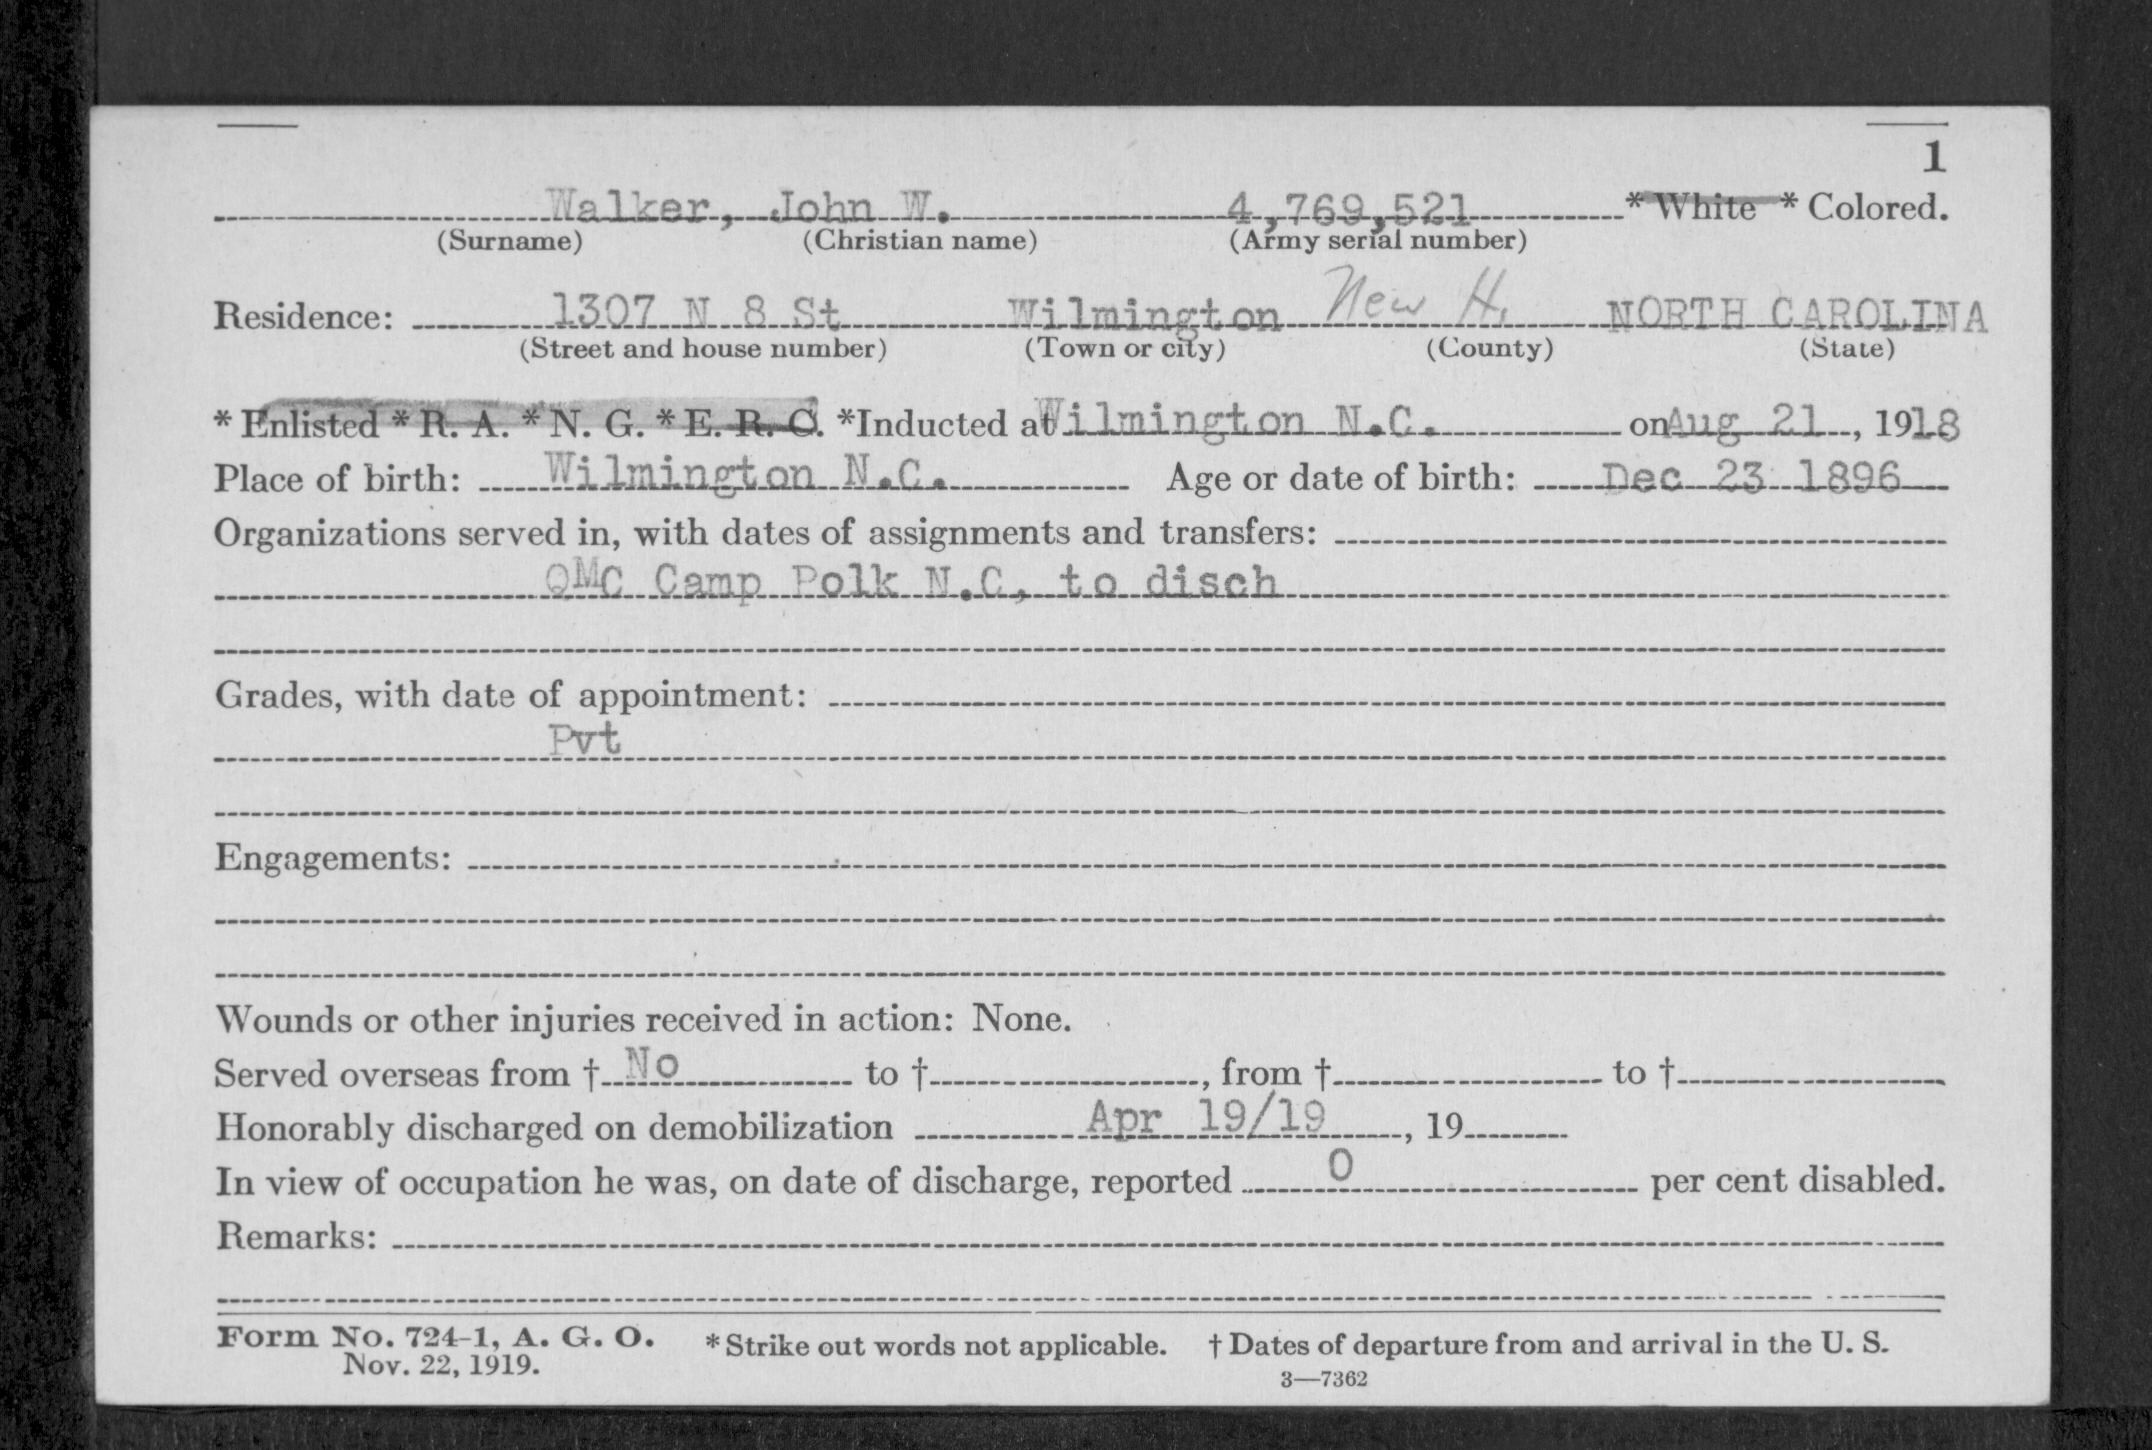 1
Walker, John W. 4,769,521 * White * Colored.
(Surname) (Christian name) (Army serial number)
Residence: 1307 N 8 St Wilmington New H. NORTH CAROLINA
(Street and house number) (Town or city) (County) (State)
* Enlisted * R. A. * N. G. * E. R. C. *Inducted at Wilmington N.C. on Aug 21, 1918
Place of birth: Wilmington N.C. Age or date of birth: Dec 23 1896
Organizations served in, with dates of assignments and transfers:
QMC Camp Polk N.C, to disch
Grades, with date of appointment:
Pvt
Engagements:
Wounds or other injuries received in action: None.
Served overseas from † No to †, from † to †
Honorably discharged on demobilization Apr 19/19, 19
In view of occupation he was, on date of discharge, reported 0 per cent disabled.
Remarks:
Form No. 724-1, A. G. O. * Strike out words not applicable. † Dates of departure from and arrival in the U. S.
Nov. 22, 1919.
3—7362